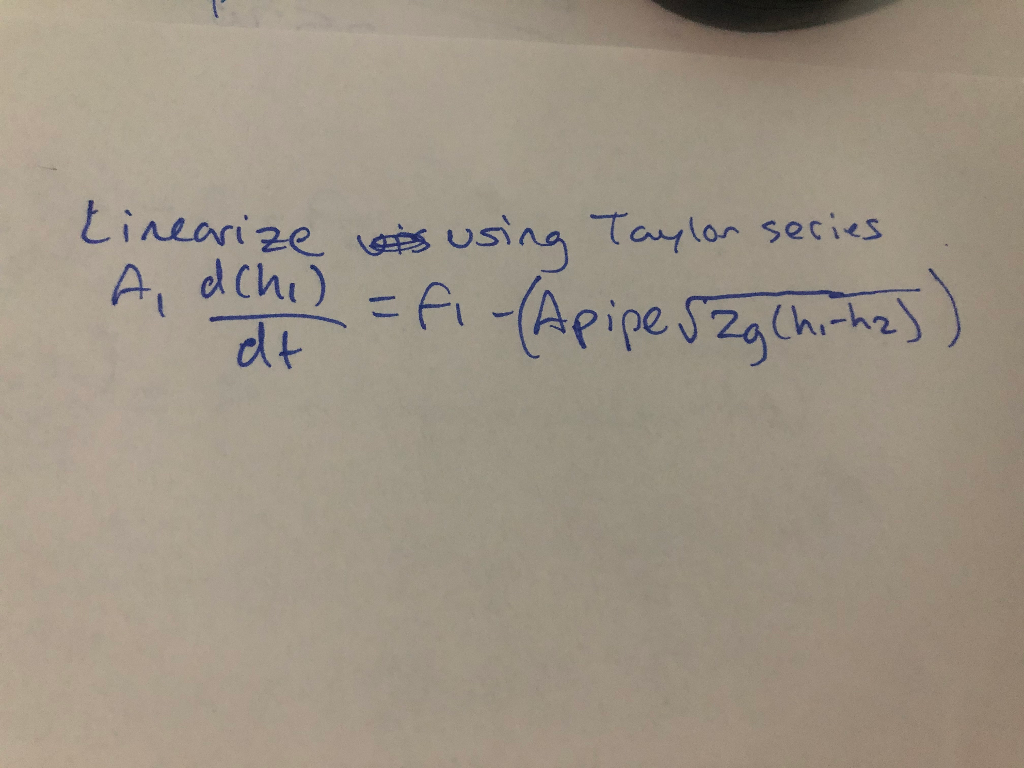 Linearize using Taylor series
A₁ d(h₁)/dt = f₁ - (Apipe √2g(h₁-h₂))